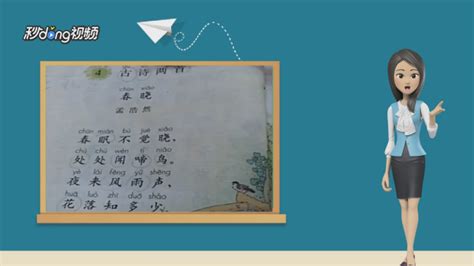 秒dong视频
4 古诗两首
chūn xiǎo
春晓
孟浩然
chūn mián bù jué xiǎo
春眠不觉晓，
chù chù wén tí niǎo
处处闻啼鸟。
yè lái fēng yǔ shēng
夜来风雨声，
huā luò zhī duō shǎo
花落知多少。